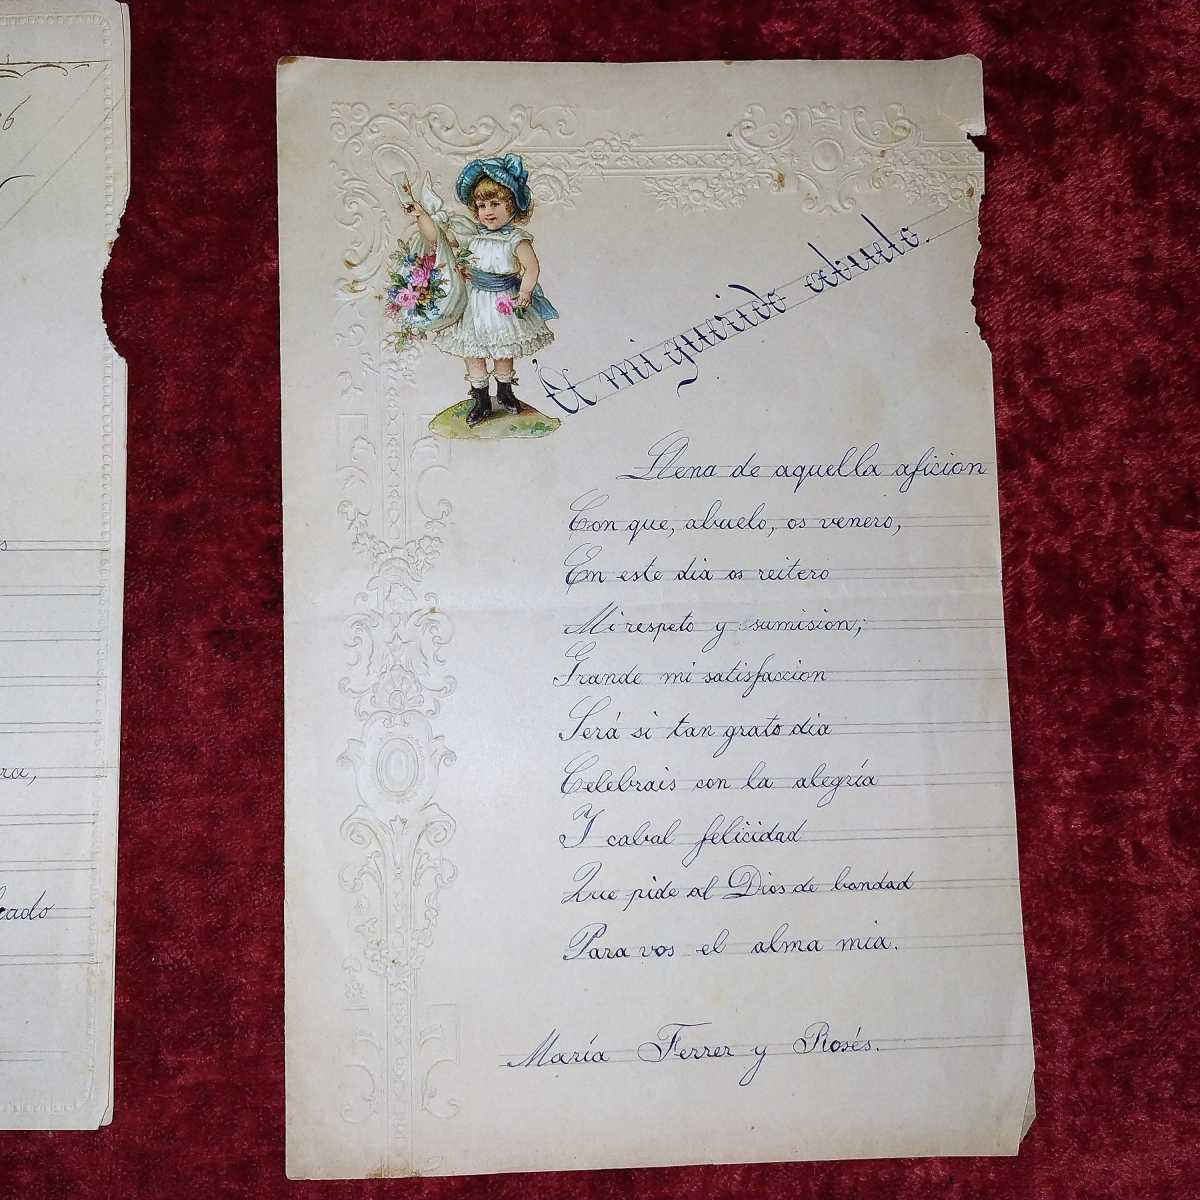 A mi querido abuelo.
Llena de aquella aficion
Con que, abuelo, os venero,
En este dia os reitero
Mi respeto y sumision;
Grande mi satisfaccion
Será si tan grato dia
Celebrais con la alegría
Y cabal felicidad
Que pide al Dios de bondad
Para vos el alma mia.
María Ferrer y Rosés.